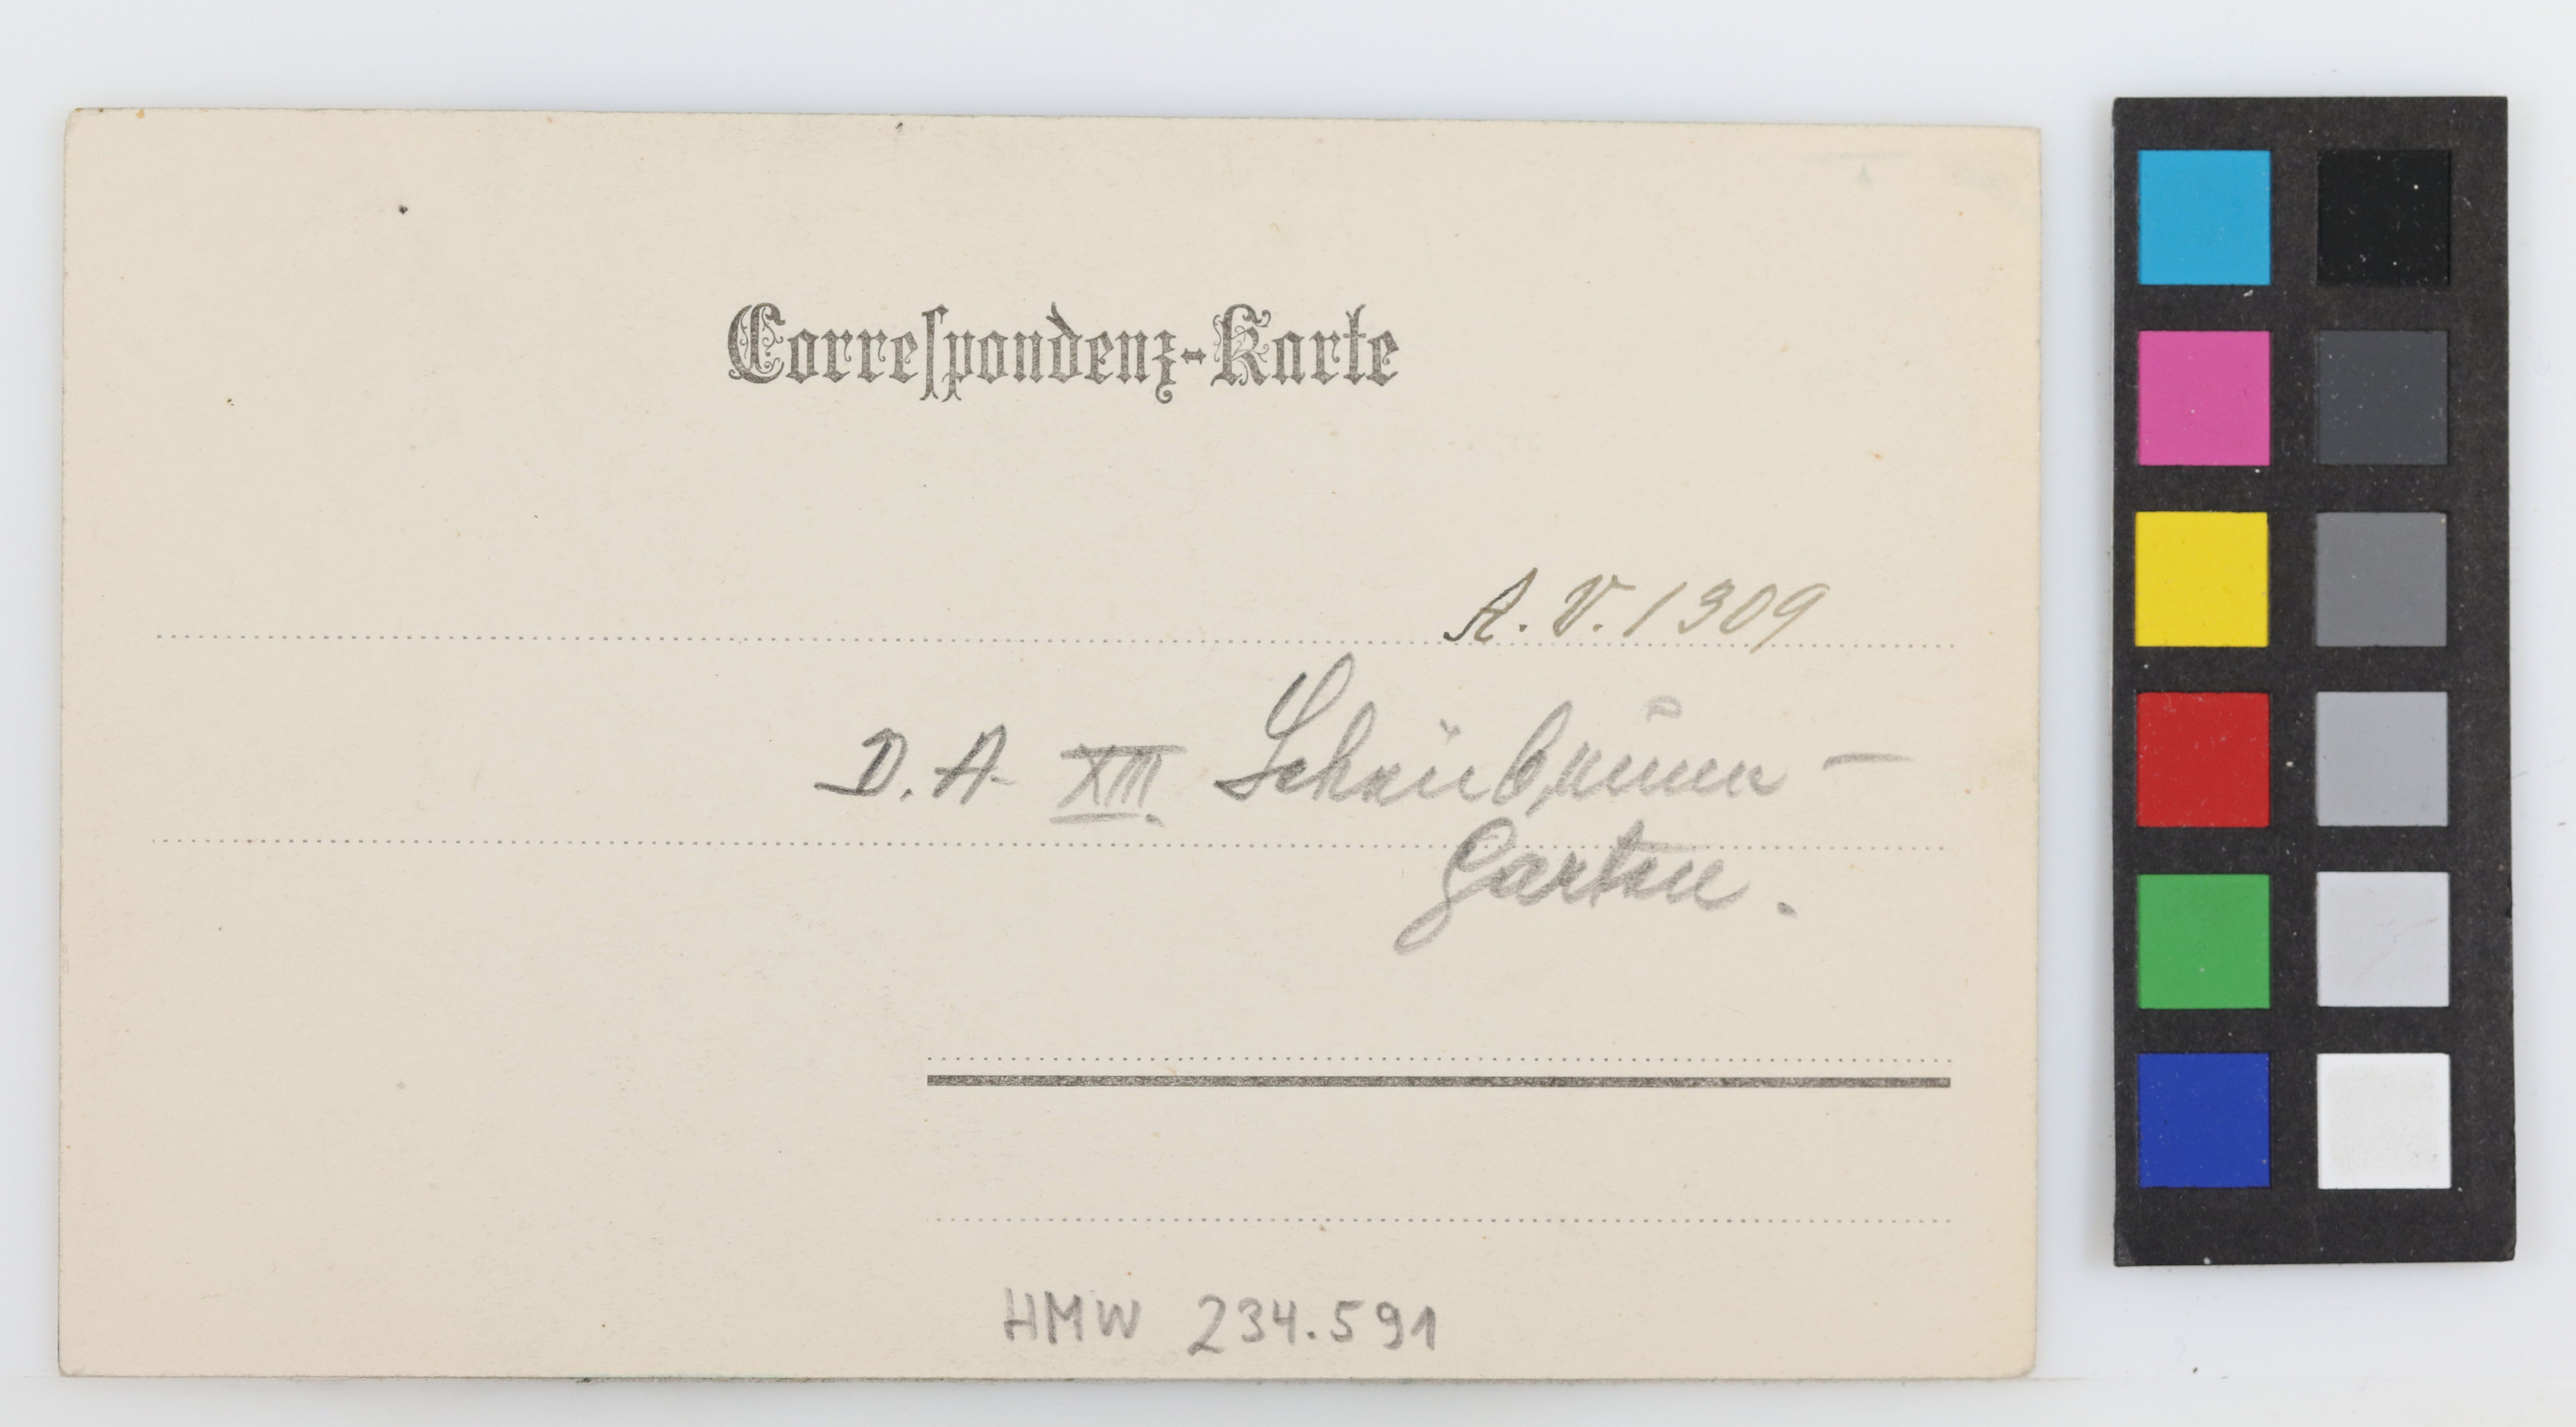 Correſpondenz-Karte
A. V. 1309
D. A. XIII. Schönbrunn –
Garten.
HMW 234.591